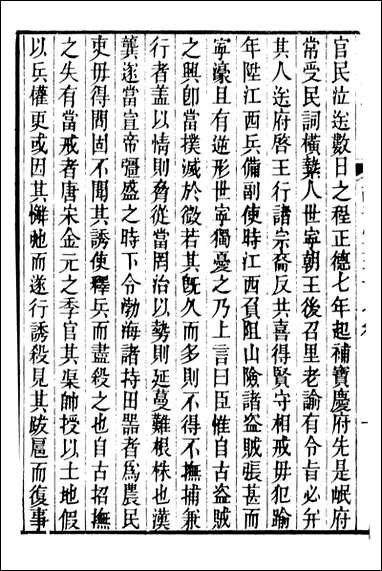 官民泣送數日之程正德七年起補寶慶府先是岷府
常受民詞橫縶人世寧朝王後召里老諭有令旨必并
其人送府啓王行諸宗裔反共喜得賢守相戒毋犯踰
年陞江西兵備副使時江西負阻山險諸盜賊張甚而
寧濠且有逆形世寧獨憂之乃上言曰臣惟自古盜賊
之興卽當撲滅於微若其旣久而多則不得不撫捕兼
行者蓋以情則脅從當罔治以勢則延蔓難根株也漢
龔遂當宣帝彊盛之時下令勃海諸持田器者爲農民
吏毋得問固不聞其誘使釋兵而盡殺之也自古招撫
之失有當戒者唐宋金元之季官其渠帥授以土地假
以兵權更或因其懈弛而遂行誘殺見其跋扈而復事